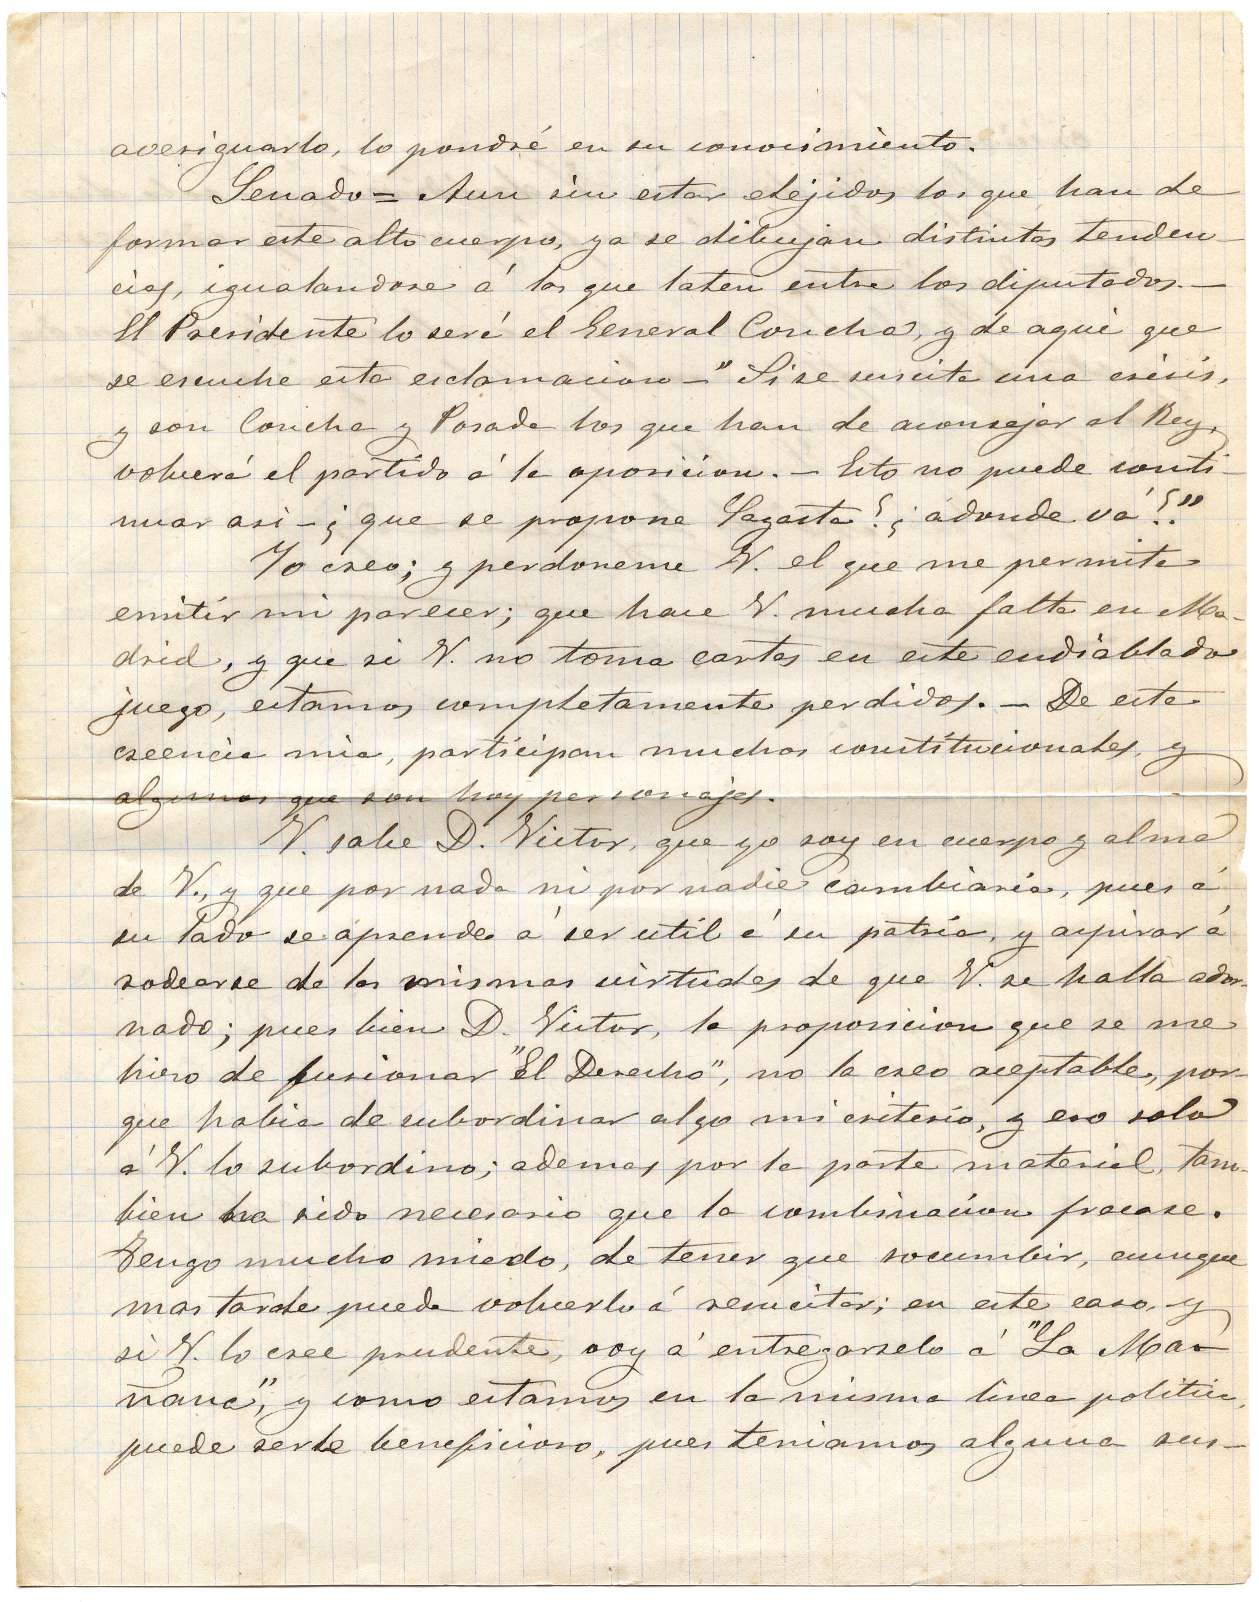 averiguarlo, lo pondré en su conocimiento.
Senado = Aun sin estar elejidos los que han de
formar este alto cuerpo, ya se dibujan distintas tenden-
cias, igualandose á las que laten entre los diputados. —
El Presidente lo será el General Concha, y de aqui que
se escuche esta esclamacion — "Si se suscita una crisis,
y son Concha y Posada los que han de aconsejar al Rey,
volverá el partido á la oposicion. — Esto no puede conti-
nuar asi — ¿que se propone Sagasta? ¿adonde vá?"
Yo creo; y perdoneme V. el que me permita
emitir mi parecer; que hace V. mucha falta en Ma-
drid, y que si V. no toma cartas en este endiablado
juego, estamos completamente perdidos. — De esta
creencia mia, participan muchos constitucionales, y
algunos que son hoy personajes.
V. sabe D. Victor, que yo soy en cuerpo y alma
de V., y que por nada ni por nadie cambiaria, pues á
su lado se aprende á ser util á su patria, y aspirar á
rodearse de las mismas virtudes de que V. se halla ador-
nado; pues bien D. Victor, la proposicion que se me
hizo de fusionar "El Derecho", no la creo aceptable, por-
que habia de subordinar algo mi criterio, y eso solo
á V. lo subordino; ademas por la parte material, tam-
bien ha sido necesario que la combinacion fracase.
Tengo mucho miedo, de tener que socumbir, aunque
mas tarde pueda volverlo á resucitar; en este caso, y
si V. lo cree prudente, voy á entregarselo á "La Ma-
ñana", y como estamos en la misma linea politica,
puede serle beneficioso, pues teniamos alguna sus-